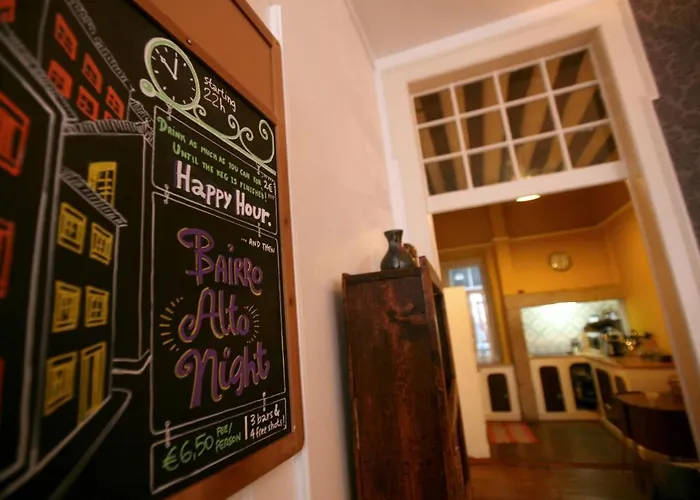 starting
22h
Drink as much as you can for 2€
Until the keg is finished!
Happy Hour.
...and then
Bairro
Alto
Night
€6,50 fee/
person
3 bars &
4 free shots!